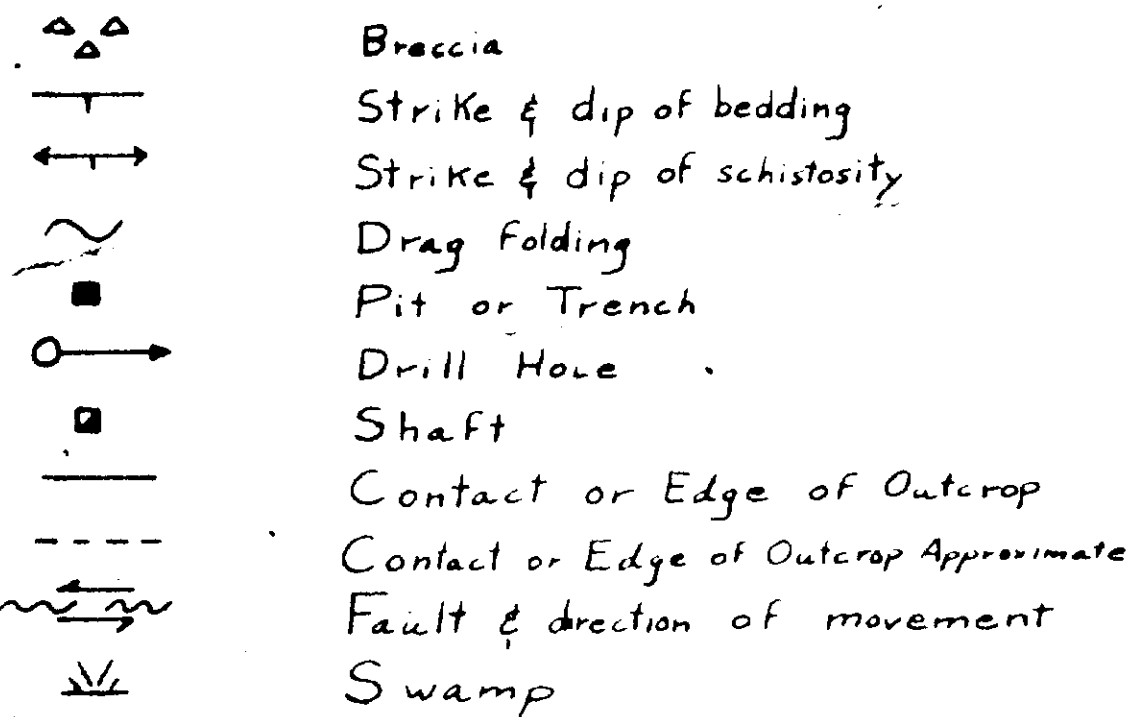 Breccia
Strike & dip of bedding
Strike & dip of schistosity
Drag Folding
Pit or Trench
Drill Hole
Shaft
Contact or Edge of Outcrop
Contact or Edge of Outcrop Approximate
Fault & direction of movement
Swamp